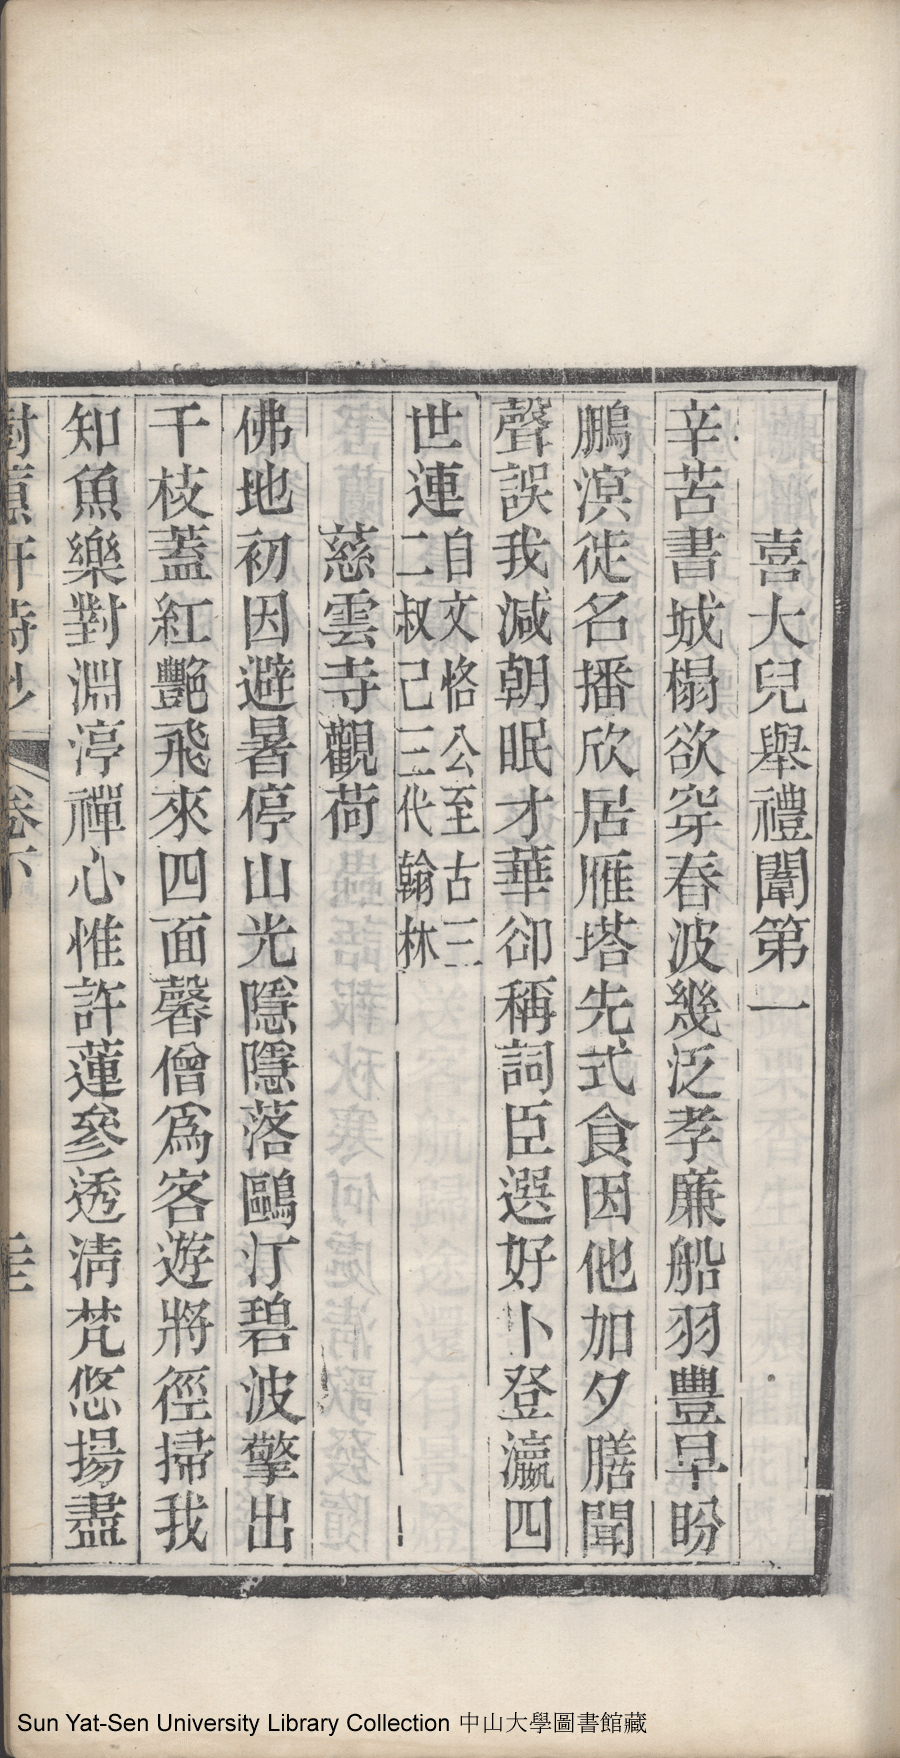 喜大兒舉禮闈第一
辛苦書城榻欲穿春波幾泛孝廉船羽豐早盼
鵬溟徙名播欣居雁塔先式食因他加夕膳聞
聲誤我減朝眠才華卻稱詞臣選好卜登瀛四
世連
自文恪公至古三
二叔己三代翰林
慈雲寺觀荷
佛地初因避暑停山光隱隱落鷗汀碧波擎出
千枝蓋紅艷飛來四面馨僧爲客遊將徑掃我
知魚樂對淵渟禪心惟許蓮參透淸梵悠揚盡
卷下
Sun Yat-Sen University Library Collection 中山大學圖書館藏